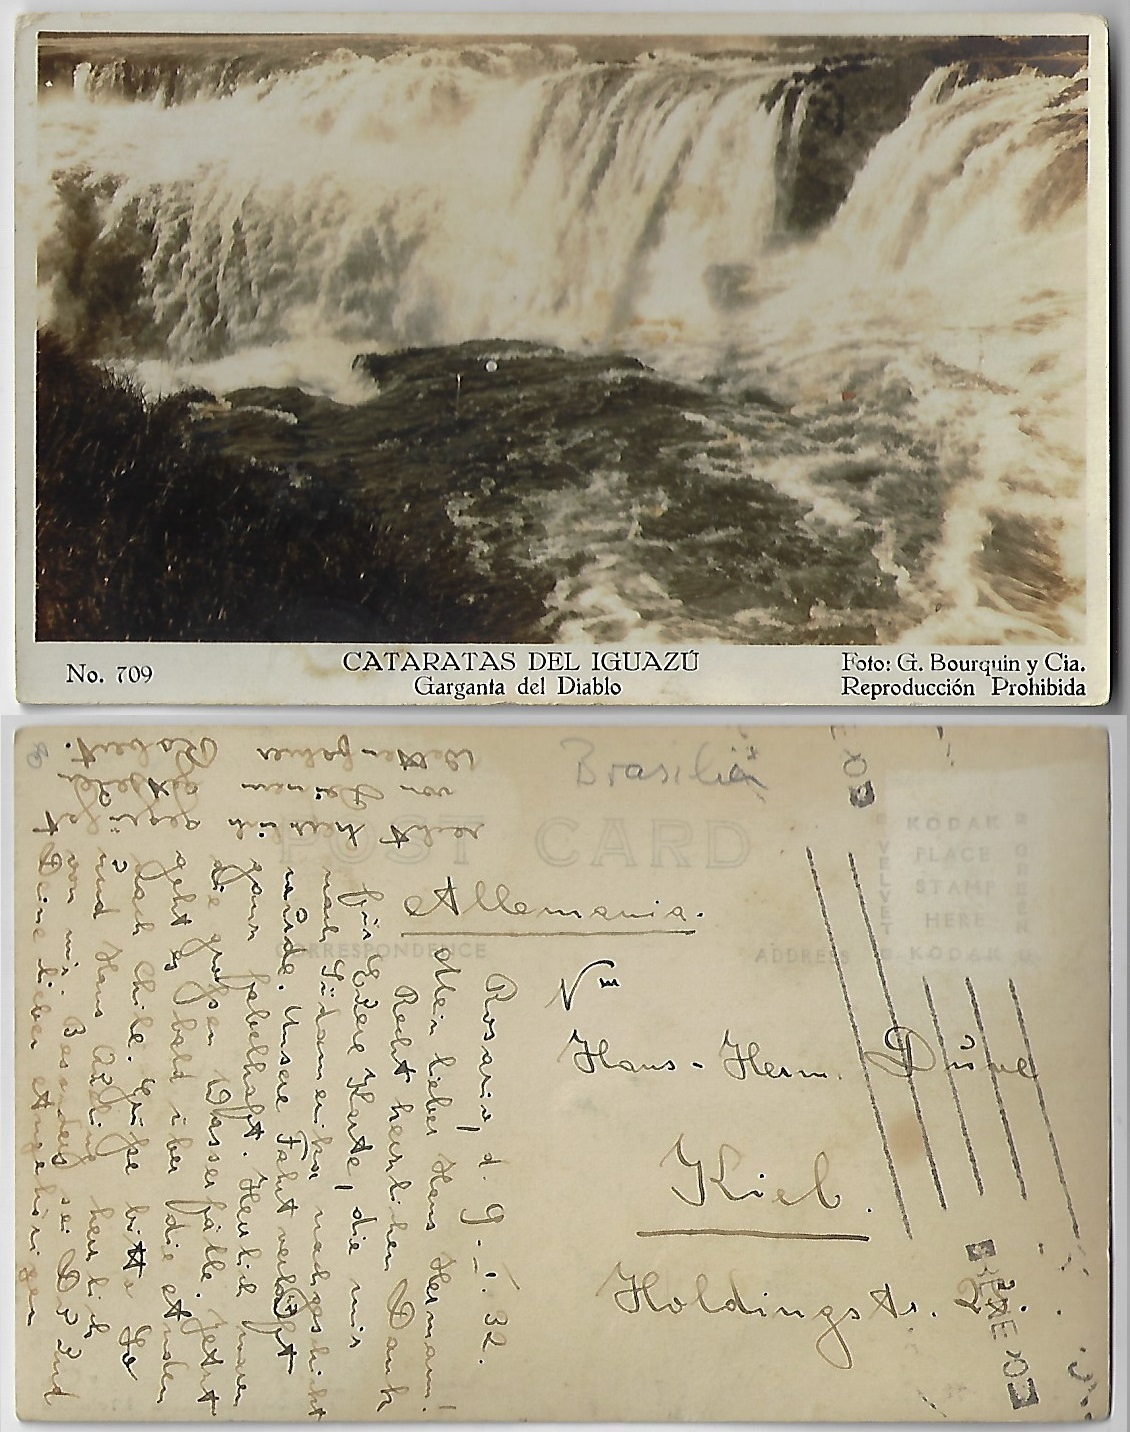 No. 709
CATARATAS DEL IGUAZÚ
Garganta del Diablo
Foto: G. Bourquin y Cia.
Reproducción Prohibida
Brasilia
POST CARD
CORRESPONDENCE
ADDRESS
KODAK
PLACE
STAMP
HERE
KODAK
VELVET
GREEN
Allemania.
Hans-Herm.
Kiel.
Holdingstr. 2.
Rosario, d. 9. 32.
Mein lieber Hans Hermann!
Recht herzlichen Dank
für Eure Karte, die mir
nach Südamerika nachgeschickt
wurde. Unsere Fahrt verläuft
ganz fabelhaft. Herrlich waren
die großen Wasserfälle. Jetzt
geht es bald über die Anden
nach Chile. Grüße bitte
und Hans herzlich
von mir. Besonders seid Du und
Deine lieben Angehörigen
recht herzlich gegrüßt
von Deinem
Robert.